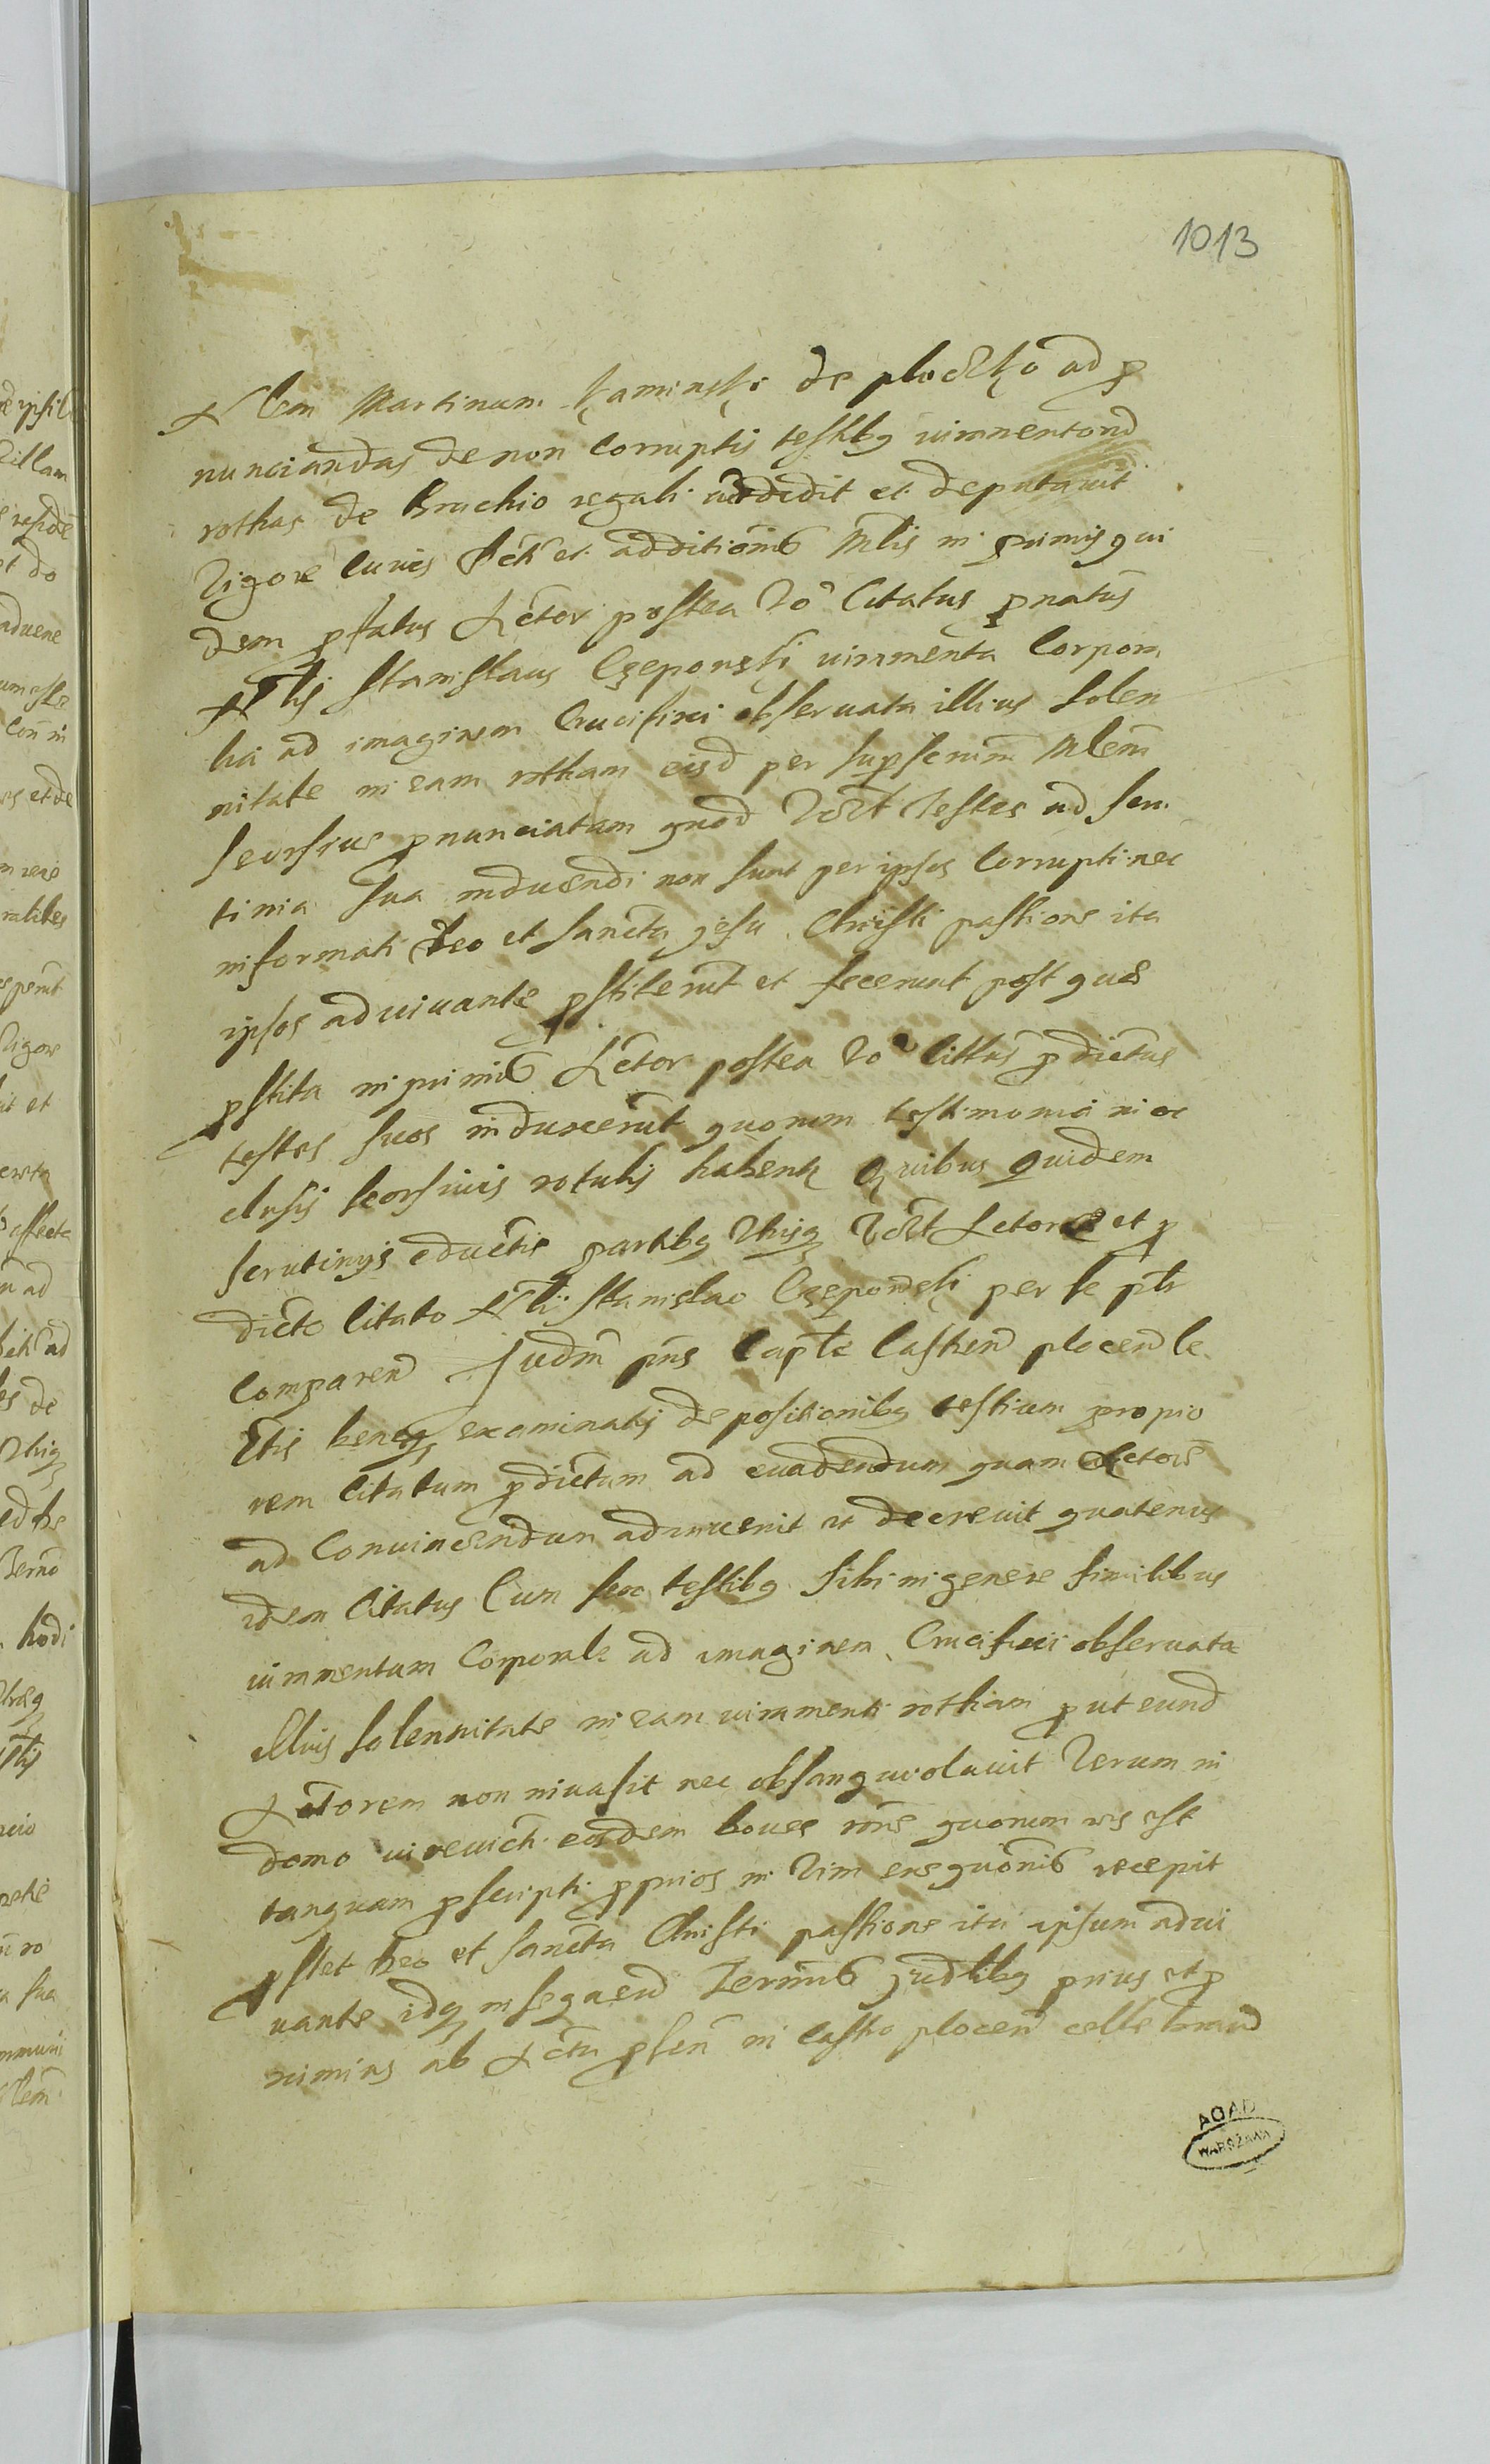 1013
Nlem Martinum Kaminski de plocsko ad p
nunciandas de non Corruptis testibq iuramentord
rothas de Brachio regali addidit et deputavit
Vigore cuius Dcti et additionis Mlis in primis qui
dem pfatus Actor postea vo Citatus pnatus
Nlis Stanislaus Czeponski iuramenta Corpora
lia ad imaginem Crucifixi observata illius Solen
nitate in eam rotham eisd per supscrum Mlem
seorsius pnunciatam quod Testes ad scru
tinia sua inducendi non sunt per ipsos Corrupti nec
informati Deo et sancta Jesu Christi passione ita
ipsos adiuvante pstiterunt et fecerunt post que
pstita in primis Actor postea vo Cittus pdictus
testes suos induxerunt quorum testimonia in oc
clusis seorsivis rotulis habentr Quibus quidem
scrutinys eductis partibq Vtrisq Actore et p
dicto Citato Nli Stanislao Czeponski per se ptr
Comparend Judm pns Captle Castren plocen le
ctis beneq examinatis depositionibq testium propio
rem Citatum pdictum ad evadendum quam Actore
ad Convincendum adinvenit et decrevit quatenus
idem Citatus Cum sex testibq sibi in genere similibus
iuramentum Corporale ad imaginem Crucifixi observata
illius solennitate in eam iuramenti rotham put eund
Actorem non invasit nec obsanguiolavit Verum in
domo eosdem boves rone quorum res est
tanquam pscripti pprios in Vim exequonis recepit
pstet Deo et sancta Christi passione ita ipsum adiu
vante idq in sequend Terminis Judlibq prius et p
ximius ab Actu psen in Castro plocen cellebrand
AGAD
WARSZAWA